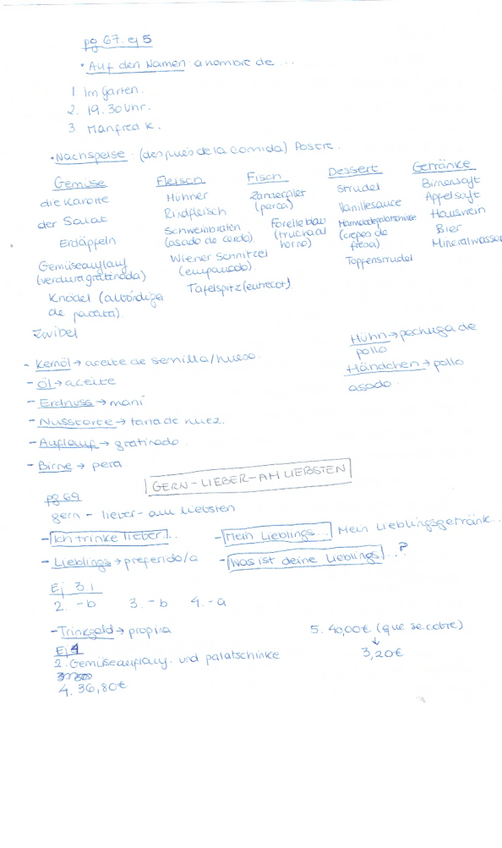 pg 67. ej 5
• Auf den Namen a nombre de ...
1 Im Garten.
2. 19.30 Uhr.
3 Manfred K.
• Nachspeise: (después de la comida) Postre.
Gemüse
die Karotte
der Salat
Erdäpfeln
Gemüseauflauf
(verdura gratinada)
Knödel (albóndiga
de patata).
Zwibel
Fleisch
Hühner
Rindfleisch
Schweinbraten
(asado de cerdo)
Wiener Schnitzel
(empanado)
Tafelspitz (entrecot)
Fisch
Zanderfilet
(perca)
Forelle blau
(trucha al
horno)
Dessert
Strudel
Vanillesauce
(crepes de
fresa)
Topfenstrudel
Getränke
Birnensaft
Apfelsaft
Hauswein
Bier
Mineralwasser
Huhn → pechuga de
pollo
Händchen → pollo
asado.
- Kernöl → aceite de semilla/hueso.
- Öl → aceite
- Erdnuss → maní
- Nusstorte → tarta de nuez.
- Auflauf → gratinado
- Birne → pera
GERN - LIEBER - AM LIEBSTEN
pg 69
gern - lieber - am liebsten
- Ich trinke lieber...
- Mein Lieblings... Mein Lieblingsgetränk...
- Lieblings → preferido/a
- Was ist deine Lieblings...?
Ej 3.
2. - b 3. - b 4. - a
- Trinkgeld → propina
5. 40,00€ (que se cobre)
↓
3,20€
Ej 4
2. Gemüseauflauf und palatschinke
4. 36,80€